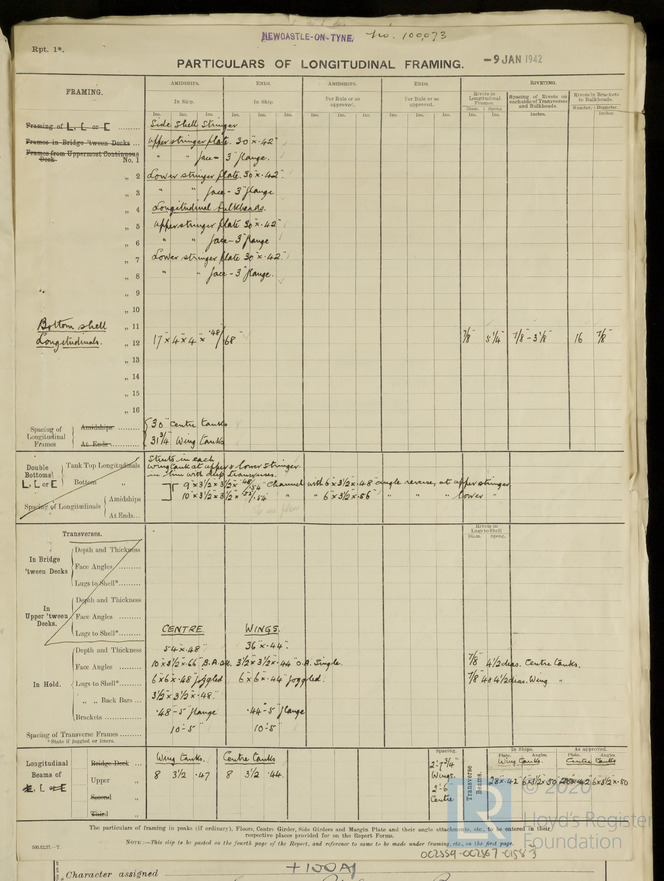 NEWCASTLE-ON-TYNE. No. 100,073
Rpt. 1*.
PARTICULARS OF LONGITUDINAL FRAMING.
-9 JAN 1942
FRAMING.
AMIDSHIPS. ENDS. AMIDSHIPS. ENDS. RIVETING.
In Ship. In Ship. Per Rule or as approved. Per Rule or as approved. Rivets in Longitudinal Frames. Spacing of Rivets on each side of Transverses and Bulkheads. Rivets in Brackets to Bulkheads.
Ins. Ins. Ins. Ins. Ins. Ins. Ins. Ins. Ins. Ins. Ins. Ins. Ins. Ins. Inches. Inches.
Framing of L, L or C Side Shell Stringer
Frames in Bridge 'tween Decks Upper stringer plate. 30"x.42"
Frames from Uppermost Continuous Deck. No. 1 " " face - 3" flange.
" 2 Lower stringer plate 30"x.42"
" 3 " " face - 3" flange
" 4 Longitudinal bulkheads.
" 5 Upper stringer plate 30"x.42"
" 6 " " face - 3" flange
" 7 Lower stringer plate 30"x.42"
" 8 " " face - 3" flange.
" 9
" 10
Bottom shell " 11
Longitudinals. " 12 17"x4"x4"x.48/.68" 7/8 5 1/4 7/8 - 3 1/8 16 7/8
" 13
" 14
" 15
" 16
Spacing of Longitudinal Frames Amidships 30" Centre tanks
At Ends 31 3/4 Wing tanks
Struts in each
Double Bottoms L, L or C Tank Top Longitudinals wing tank at upper & lower stringer
in line with deep transverses.
Bottom " 9"x3 1/2"x3 1/2"x.48/.54 channel with 6"x3 1/2"x.48 angle reverse, at upper stringer
Spacing of Longitudinals Amidships 10"x3 1/2"x3 1/2"x.52/.54 " " 6"x3 1/2"x.56" " " " lower "
At Ends
Transverses. Rivets in Lugs to Shell
Diam. Spcng.
In Bridge 'tween Decks Depth and Thickness
Face Angles
Lugs to Shell*
In Upper 'tween Decks. Depth and Thickness
Face Angles
Lugs to Shell* CENTRE WINGS.
In Hold. Depth and Thickness 54"x.48" 36"x.44"
Face Angles 10"x3 1/2"x.66" 3 1/2"x3 1/2"x.44" O.A. Single. 7/8 4 1/2 dias. Centre Tanks.
Lugs to Shell* 6"x6"x.48 joggled 6"x6"x.44" joggled. 7/8 4 1/2 dias. Wing "
" " Back Bars 3 1/2"x3 1/2"x.48"
Brackets .48 - 5" flange .44 - 5" flange
Spacing of Transverse Frames 10'-5" 10'-5"
* State if joggled or liners.
Spacing. In Ships. As approved.
Plate. Angles. Plate. Angles.
Longitudinal Beams of L, L or C Bridge Deck Wing Tanks. Centre Tanks 2'-7 3/4" Transverse Beams. Wing Tanks. Centre Tanks
Upper " 8 3 1/2 .47 8 3 1/2 .44 Wings. 28"x.42 6"x3 1/2"x.50
Second " 2'-6"
Third " Centre
The particulars of framing in peaks (if ordinary), Floors, Centre Girder, Side Girders and Margin Plate and their angle attachments, etc., to be entered in their respective places provided for on the Report Forms.
NOTE:—This slip to be pasted on the fourth page of the Report, and reference to same to be made under framing, etc., on the first page.
© 2020
Lloyd's Register
Foundation
Character assigned +100A1